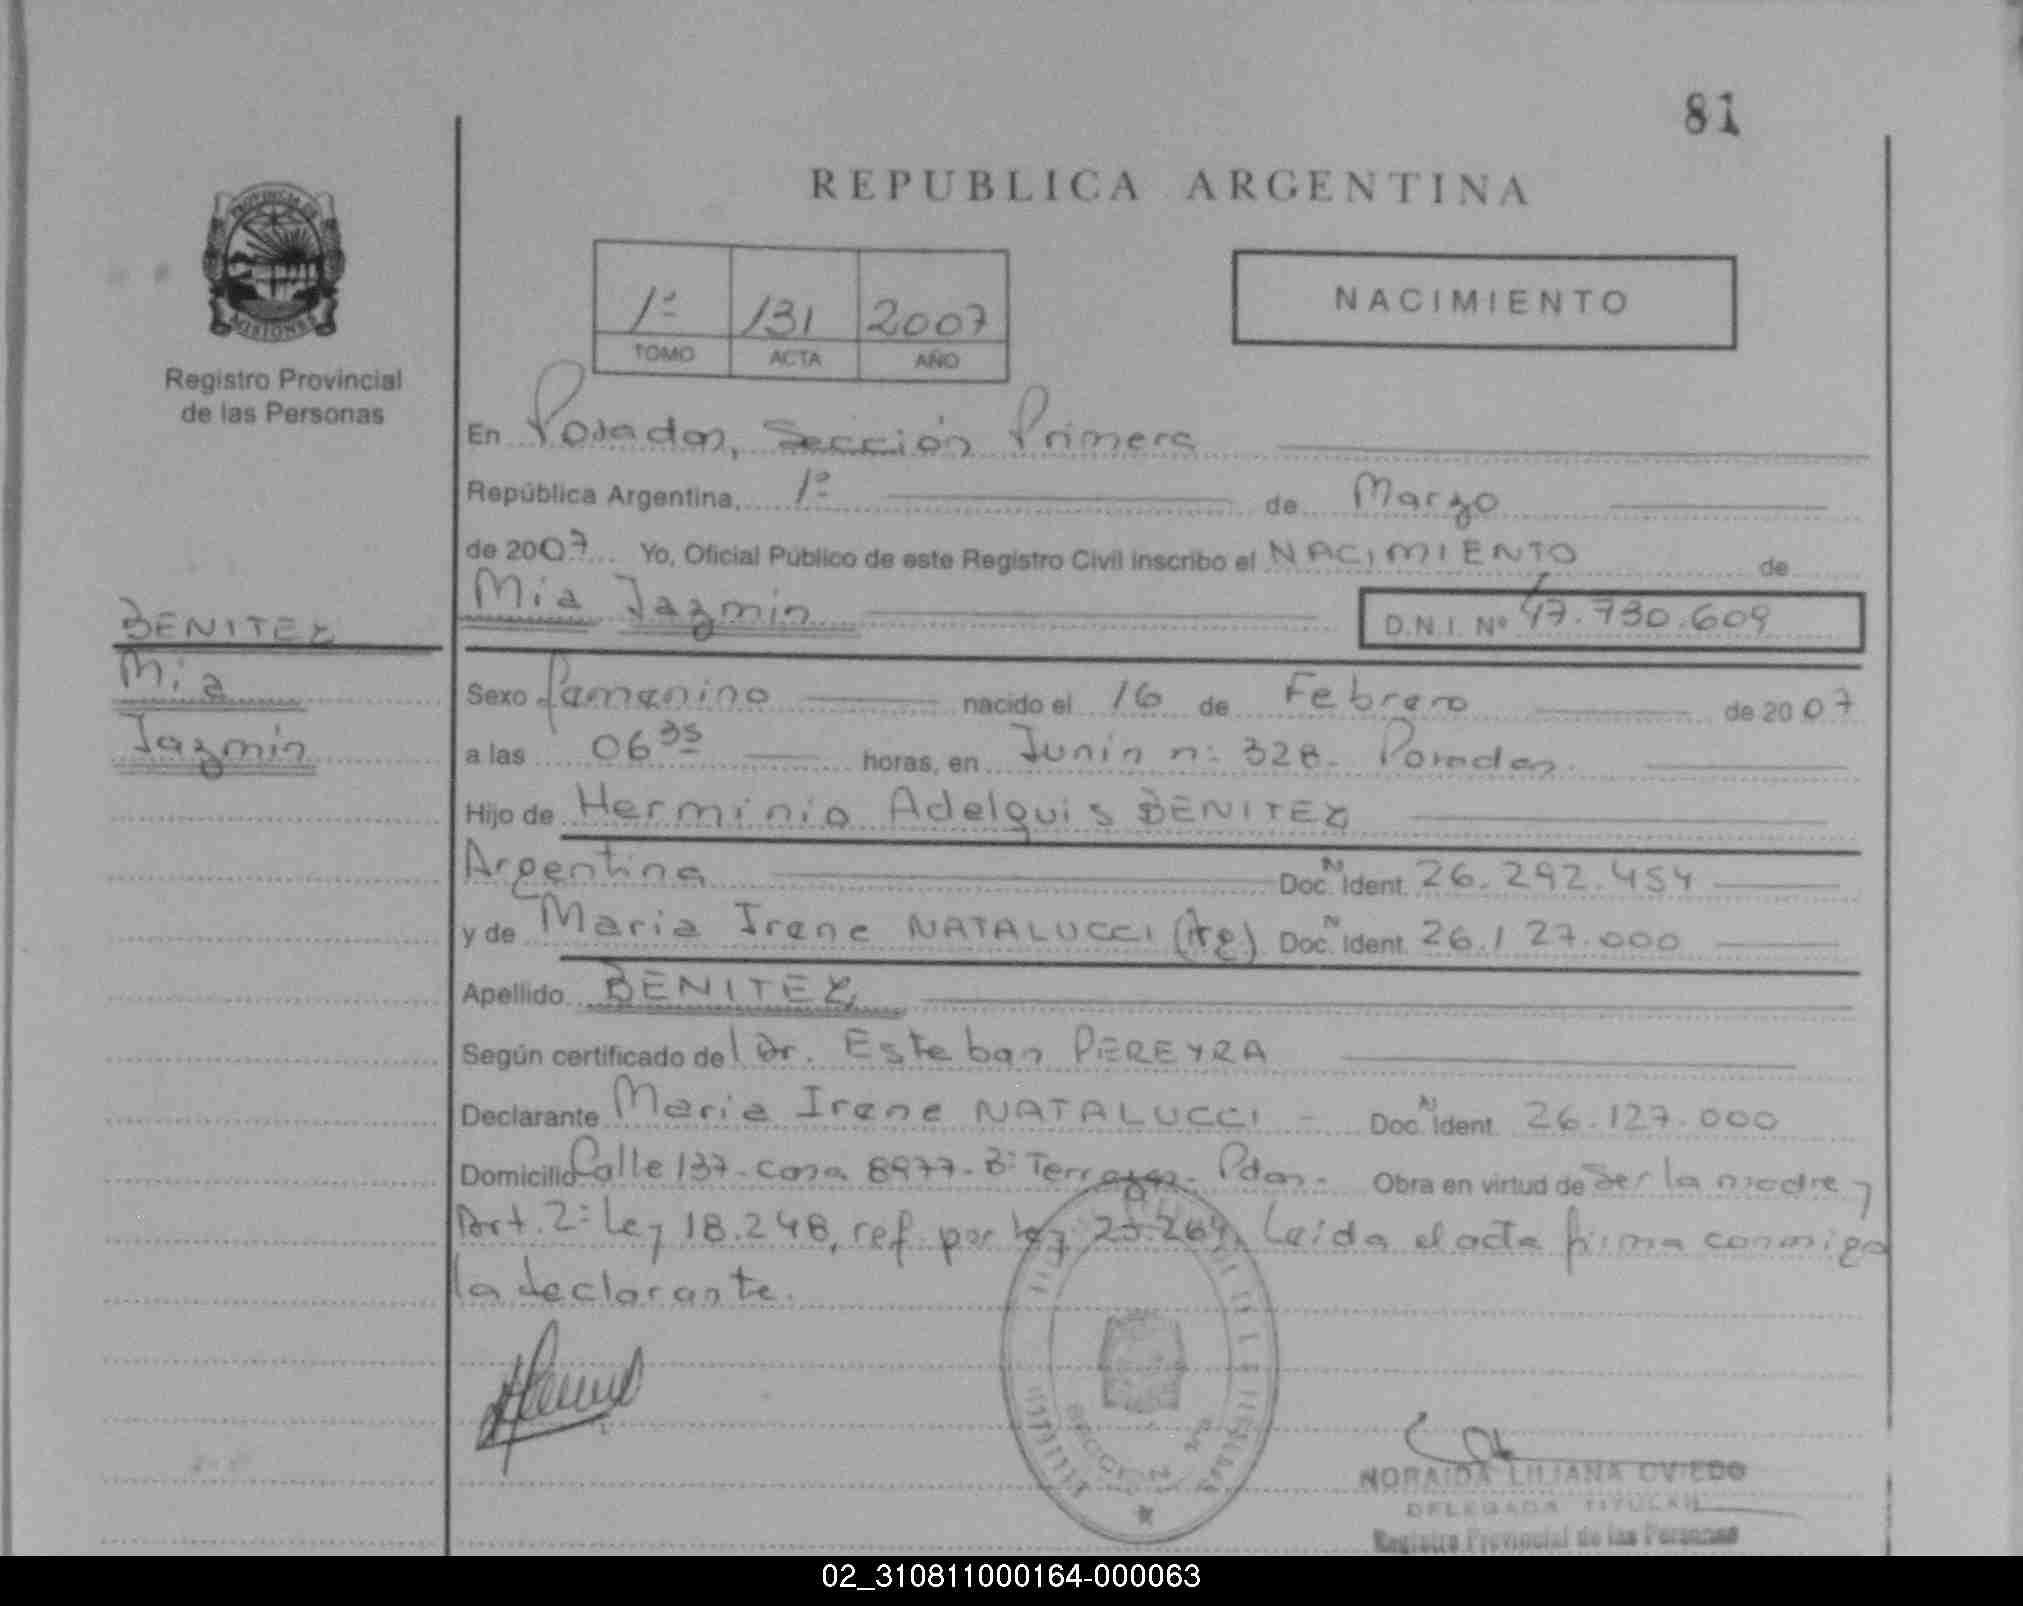 81
REPUBLICA ARGENTINA
PROVINCIA DE
MISIONES
Registro Provincial
de las Personas
1º 131 2007
TOMO ACTA AÑO
NACIMIENTO
En Posadas, Sección Primera
República Argentina, 1º de Marzo
de 2007 Yo, Oficial Público de este Registro Civil inscribo el NACIMIENTO de
Mia Jazmin D.N.I. Nº 47.730.609
BENITEZ
Mia
Jazmin
Sexo famenino nacido el 16 de Febrero de 2007
a las 06 35 horas, en Junin nº 328. Posadas.
Hijo de Herminio Adelquis BENITEZ
Argentina Doc. N Ident. 26.292.454
y de Maria Irene NATALUCCI (Arg) Doc. N Ident. 26.127.000
Apellido BENITEZ
Según certificado del Dr. Esteban PEREYRA
Declarante Maria Irene NATALUCCI - Doc. N Ident. 26.127.000
Domicilio Calle 137- casa 8977- Bº Terrazas- Pdas- Obra en virtud de ser la madre y
Art. 2º Ley 18.248, ref. por ley 25.264, Leida el acta firma conmigo
la declarante.
SECCION
NORAIDA LILIANA OVIEDO
DELEGADA TITULAR
Registro Provincial de las Personas
02_310811000164-000063